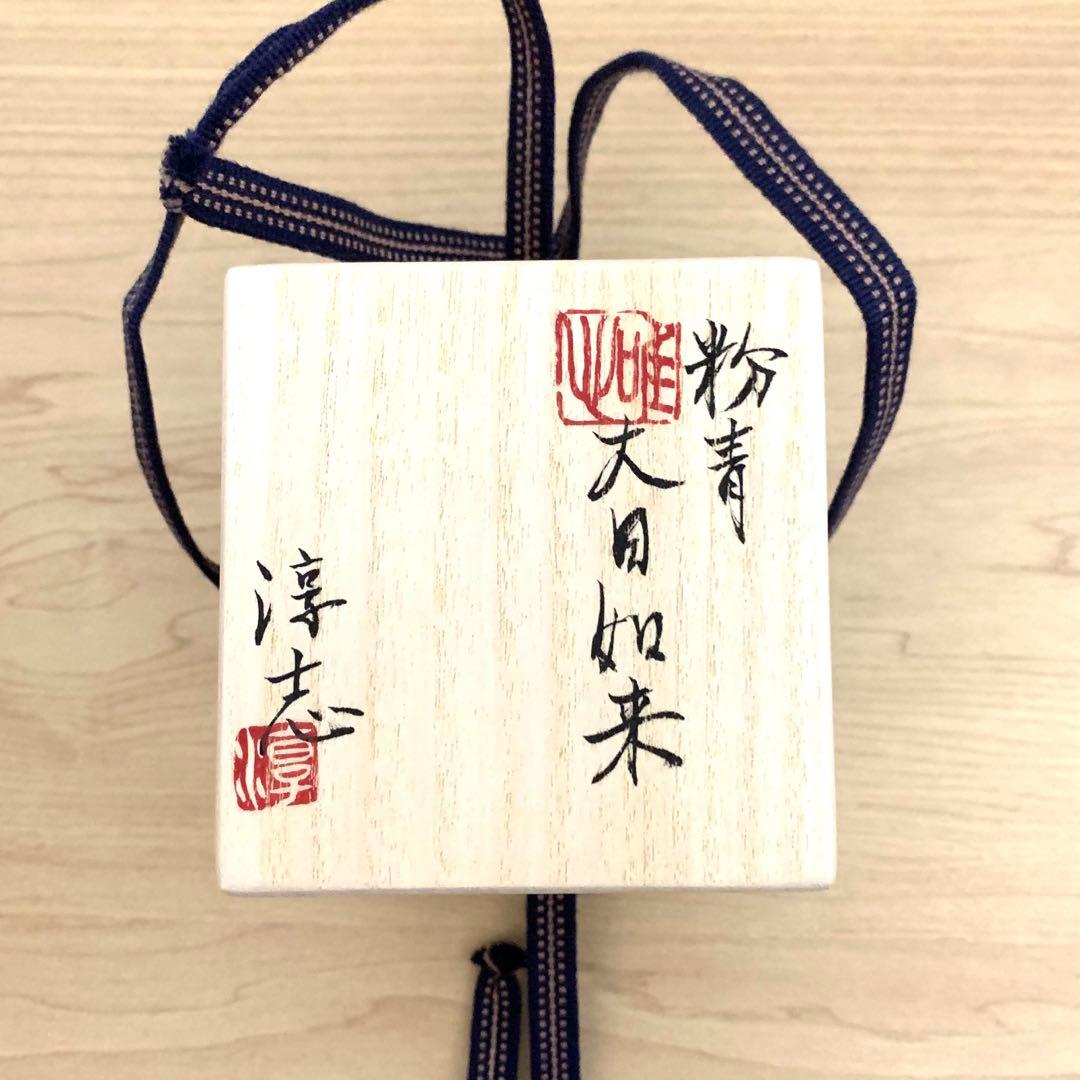 粉青
大日如来
淳志
淳